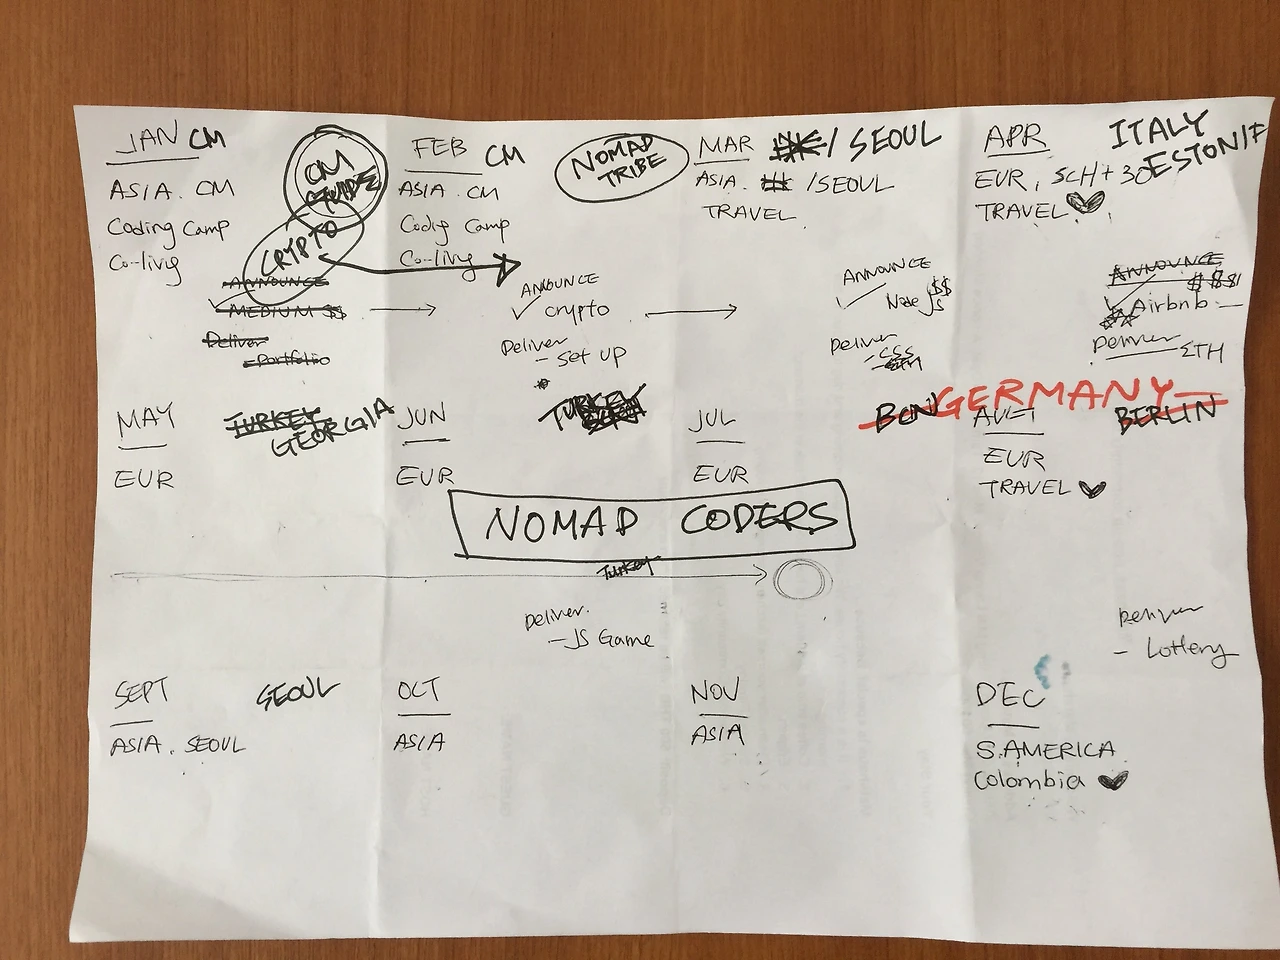 JAN CM
ASIA. CM
Coding Camp
Co-living
CM
GUIDE
CRYPTO
ANNOUNCE
MEDIUM $$
Deliver
- Portfolio
FEB CM
ASIA. CM
Coding Camp
Co-living
NOMAD
TRIBE
ANNOUNCE
crypto
Deliver
- Set up
MAR HK / SEOUL
ASIA. HK / SEOUL
TRAVEL
ANNOUNCE
Node JS $$
Deliver
- CSS
- ETH
APR ITALY
ESTONIA
EUR, SCH + 30
TRAVEL
ANNOUNCE
$ $ $
Airbnb
Deliver
ETH
MAY TURKEY
GEORGIA
EUR
JUN TURKEY
EUR
JUL
EUR
BON GERMANY BERLIN
AUG
EUR
TRAVEL
NOMAD CODERS
Turkey
Deliver.
- JS Game
Deliver
- Lottery
SEPT SEOUL
ASIA. SEOUL
OCT
ASIA
NOV
ASIA
DEC
S.AMERICA
Colombia